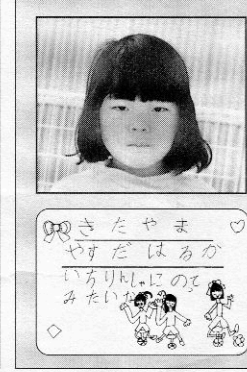 きたやま
やすだ はるか
いちりんしゃに のって
みたいな